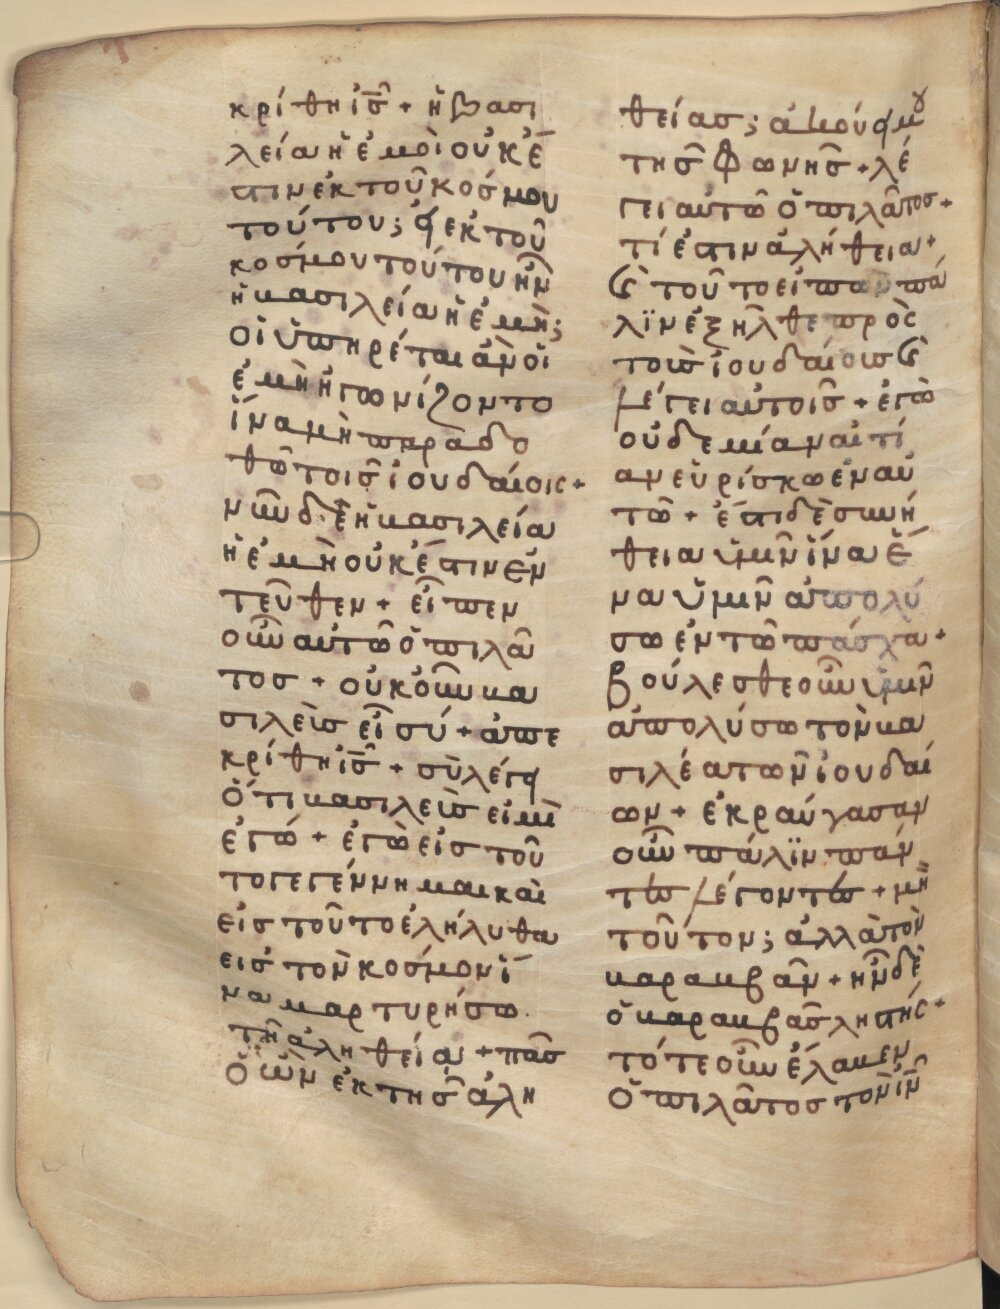 κρίθη ἰς̅ + ἡ βασι
λεία ἡ ἐμὴ οὐκ ἔ
στιν ἐκ τοῦ κόσμου
τούτου; εἰ ἐκ τοῦ
κόσμου τούτου ἦν
ἡ βασιλεία ἡ ἐμὴ;
οἱ ὑπηρέται ἂν οἱ
ἐμὴ ἠγωνίζοντο
ἵνα μὴ παραδο
θῶ τοῖς ἰουδαίοις +
νῦν δὲ ἡ βασιλεία
ἡ ἐμὴ οὐκ ἔστιν ἐν
τεῦθεν + εἶπεν
οὖν αὐτῶ ὁ πιλᾶ
τος + οὐκοῦν βα
σιλεὺς εἶ σύ + ἀπε
κρίθη ἰς̅ + σὺ λέγει
ὅτι βασιλεὺς εἰμὶ
ἐγώ + ἐγὼ εἰς τοῦ
το γεγέννημαι καὶ
εἰς τοῦτο ἐλήλυθα
εἰς τὸν κόσμον ἵ
να μαρτυρήσω
τῆ ἀληθεία + πᾶς
ὁ ὢν ἐκ τῆς ἀλη
θείας; ἀκούει μου
τῆς φωνῆς + λέ
γει αὐτῶ ὁ πιλᾶτος +
τί ἐστιν ἀλήθεια +
καὶ τοῦτο εἰπὼν πά
λϊν ἐξῆλθε πρὸς
τοὺς ἰουδαίους καὶ
λέγει αὐτοῖς + ἐγὼ
οὐδεμίαν αἰτί
αν εὑρίσκω ἐν αὐ
τῶ + ἔστι δὲ συνή
θεια ὑμῖν ἵνα ἕ
να ὑμῖν ἀπολύ
σω ἐν τῶ πάσχα +
βούλεσθε οὖν ὑμῖν
ἀπολύσω τὸν βα
σιλέα τῶν ἰουδαί
ων + ἐκραύγασαν
οὖν πάλϊν πάν
τες λέγοντες + μὴ
τοῦτον; ἀλλὰ τὸν
βαραββᾶν + ἦν δὲ
ὁ βαραββᾶς ληστής +
τότε οὖν ἔλαβεν
ὁ πιλᾶτος τὸν ἰν̅